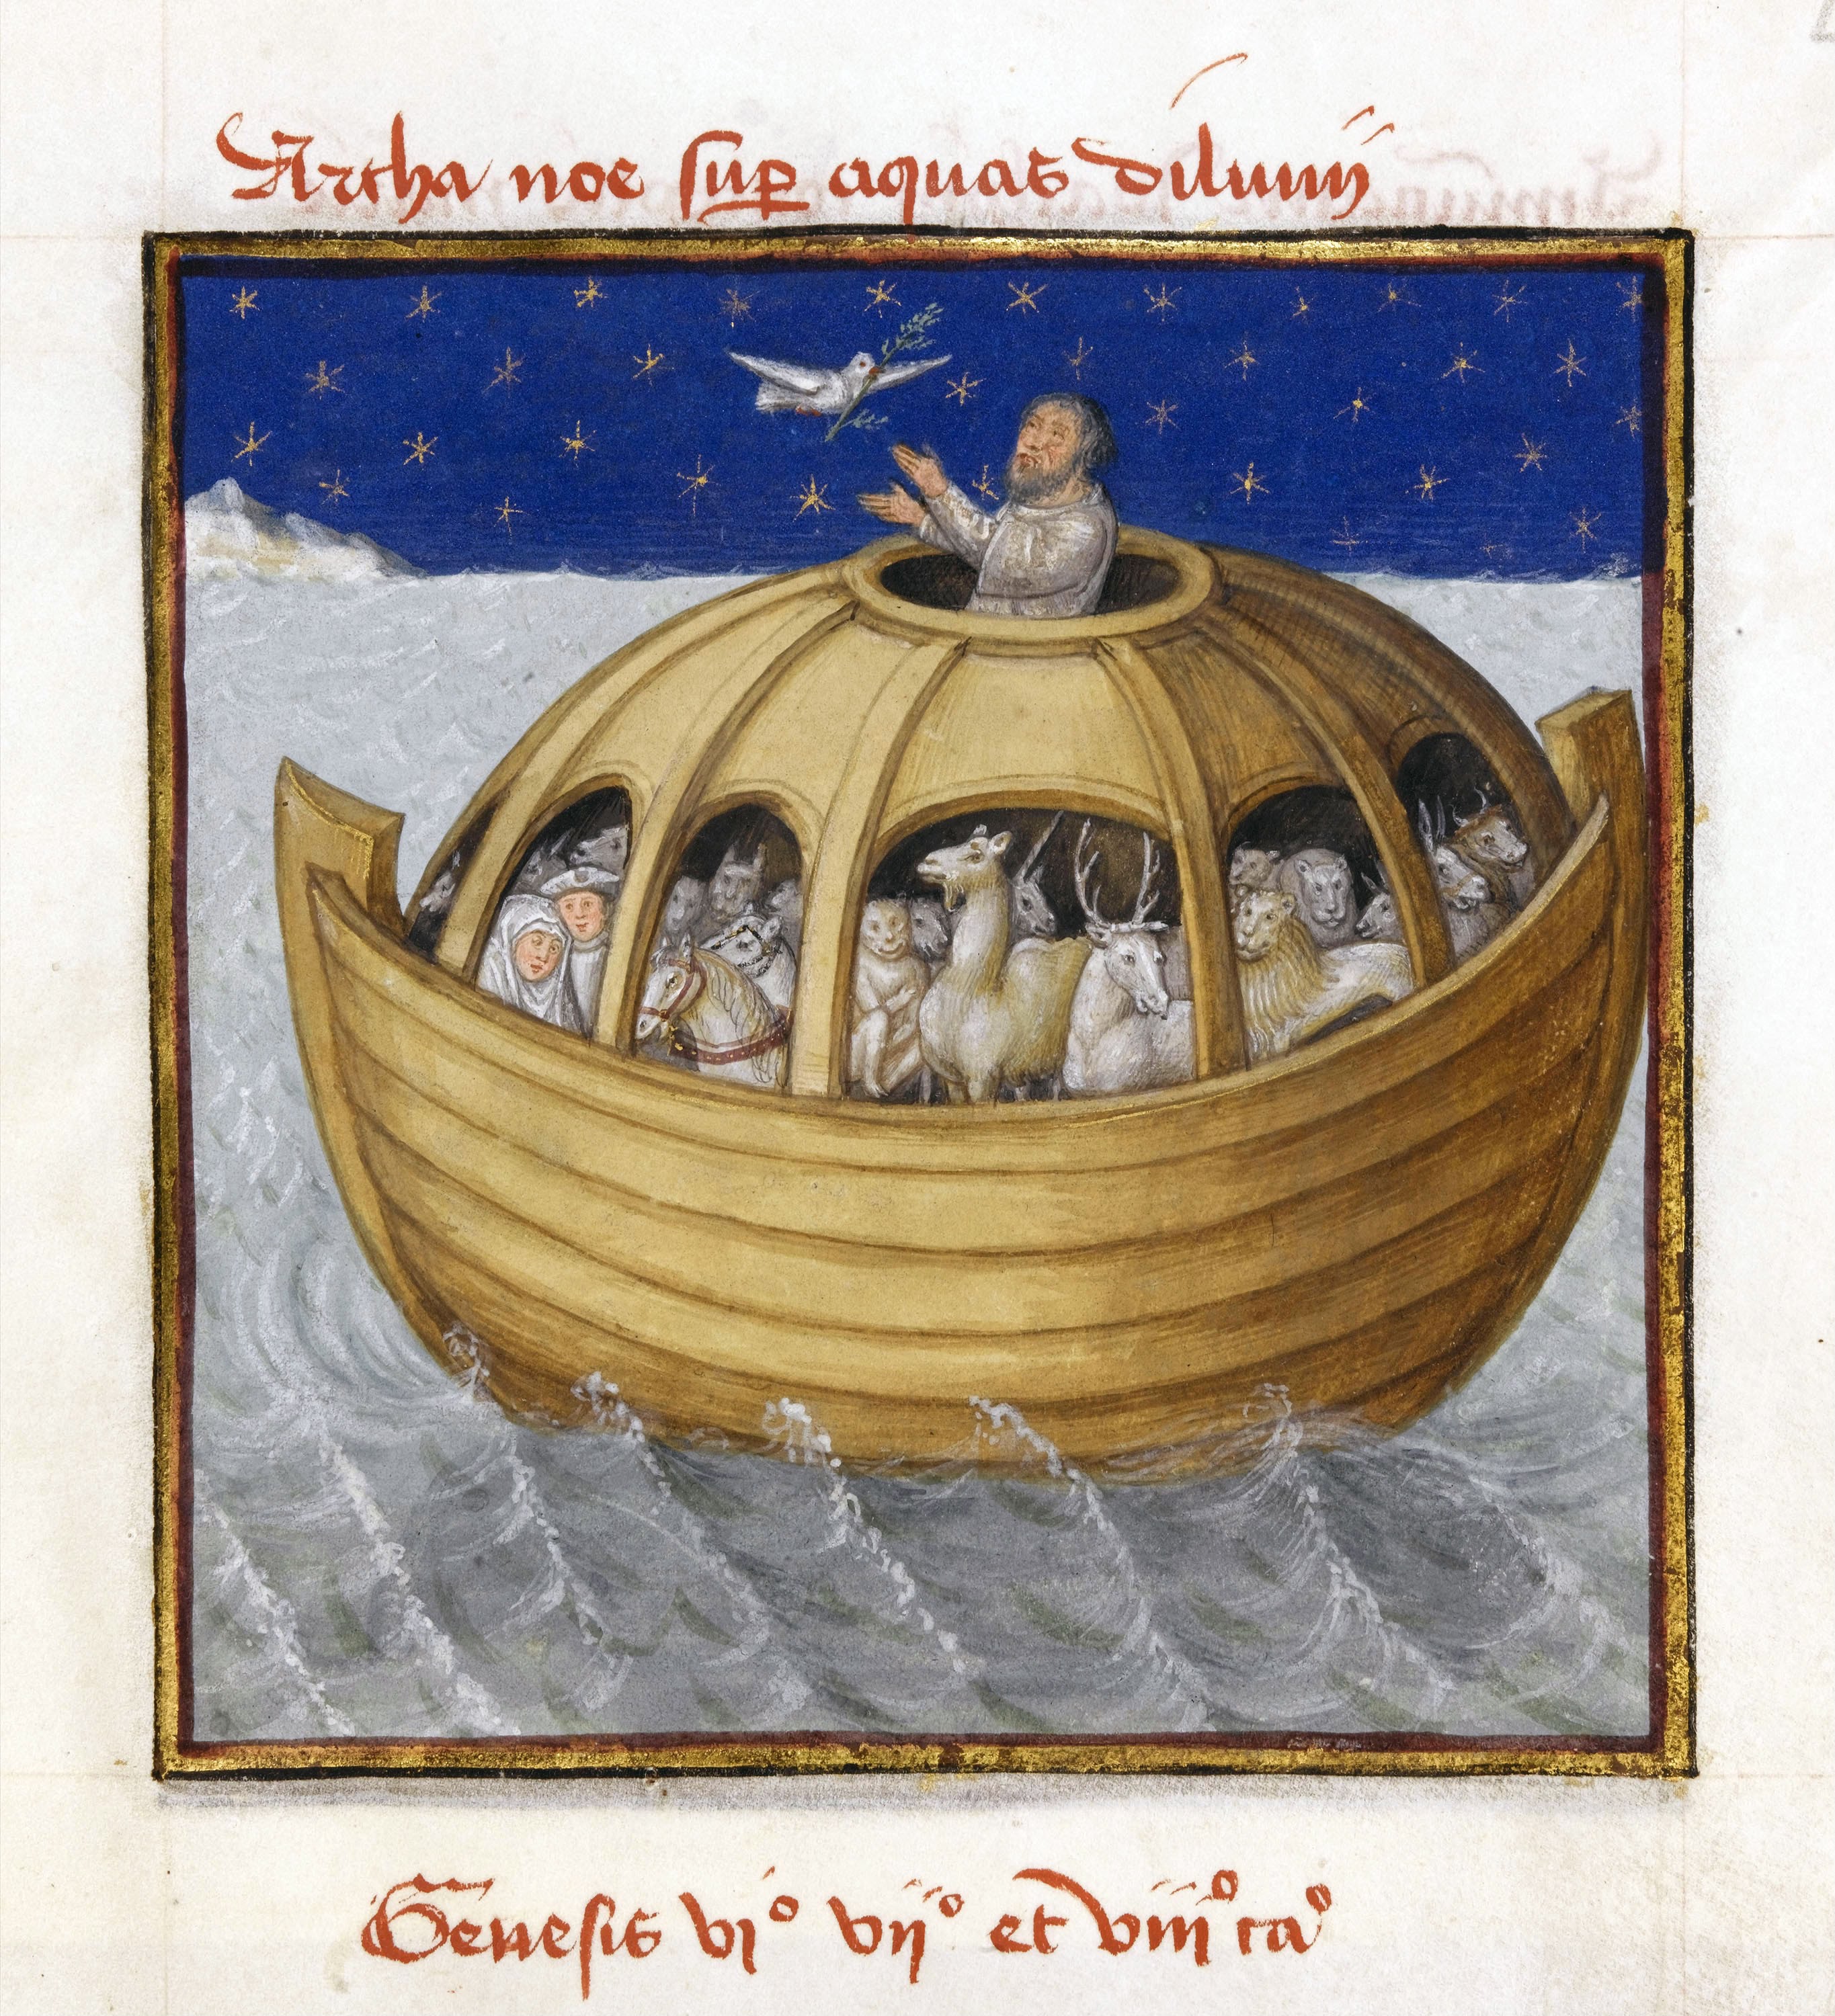 Archa noe sup aquas diluuij
Genesis vjº vijº et viijº caº